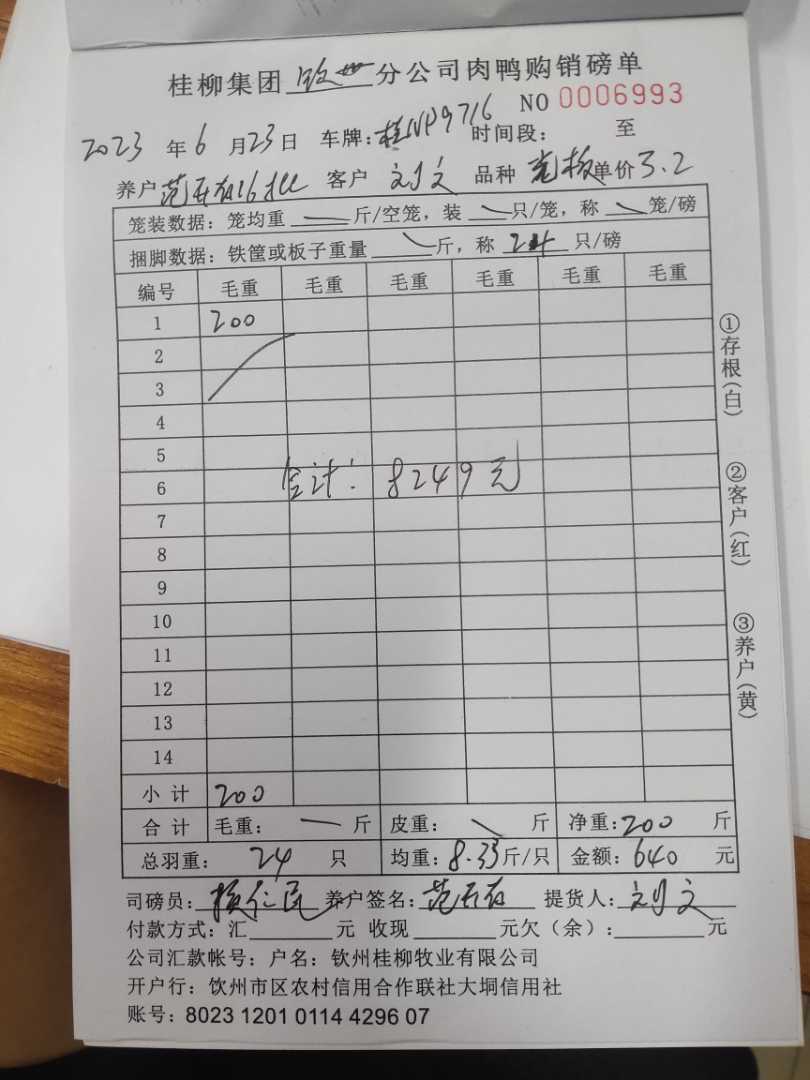 桂柳集团 钦州 分公司肉鸭购销磅单
NO 0006993
2023 年 6 月 23 日 车牌: 桂NP9716 时间段: 至
养户 范 16批 客户 刘文 品种 单价 3.2
笼装数据: 笼均重 斤/空笼, 装 只/笼, 称 笼/磅
捆脚数据: 铁筐或板子重量 斤, 称 24 只/磅
编号 毛重 毛重 毛重 毛重 毛重 毛重
1 200
2
3
4
5
6
合计: 8249元
7
8
9
10
11
12
13
14
小 计 200
合 计 毛重: 斤 皮重: 斤 净重: 200 斤
总羽重: 24 只 均重: 8.33 斤/只 金额: 640 元
司磅员: 仁民 养户签名: 范 提货人: 刘文
付款方式: 汇 元 收现 元欠(余): 元
公司汇款帐号: 户名: 钦州桂柳牧业有限公司
开户行: 钦州市区农村信用合作联社大垌信用社
账号: 8023 1201 0114 4296 07
①存根(白)
②客户(红)
③养户(黄)